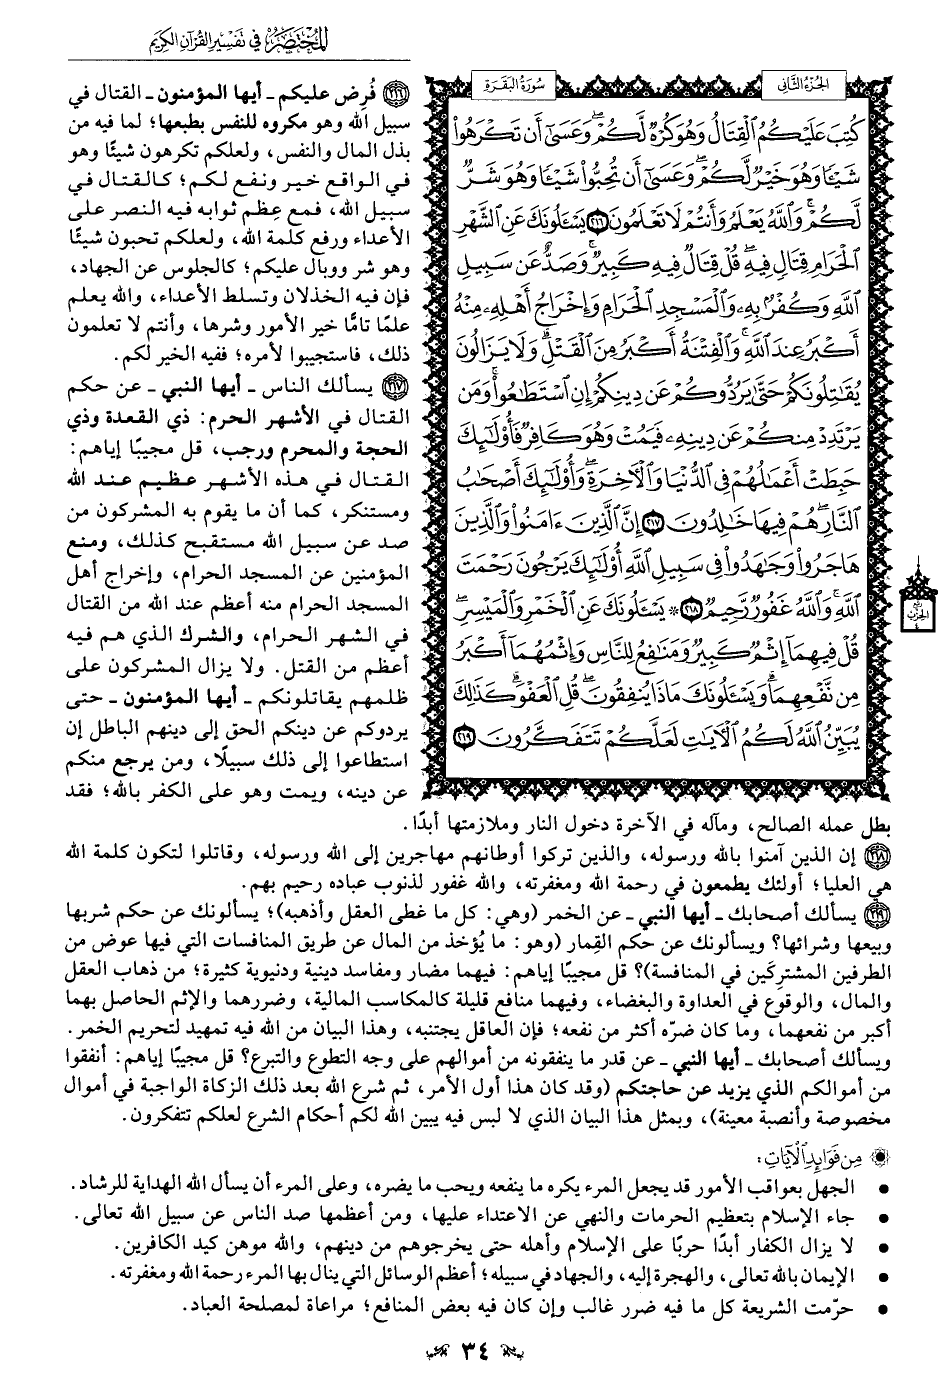 المختصر في تفسير القرآن الكريم
الجزء الثاني
سورة البقرة
كُتِبَ عَلَيْكُمُ ٱلْقِتَالُ وَهُوَ كُرْهٌ لَّكُمْ ۖ وَعَسَىٰٓ أَن تَكْرَهُوا۟
شَيْـًٔا وَهُوَ خَيْرٌ لَّكُمْ ۖ وَعَسَىٰٓ أَن تُحِبُّوا۟ شَيْـًٔا وَهُوَ شَرٌّ
لَّكُمْ ۗ وَٱللَّهُ يَعْلَمُ وَأَنتُمْ لَا تَعْلَمُونَ ٢١٦ يَسْـَٔلُونَكَ عَنِ ٱلشَّهْرِ
ٱلْحَرَامِ قِتَالٍ فِيهِ ۖ قُلْ قِتَالٌ فِيهِ كَبِيرٌ ۖ وَصَدٌّ عَن سَبِيلِ
ٱللَّهِ وَكُفْرٌۢ بِهِۦ وَٱلْمَسْجِدِ ٱلْحَرَامِ وَإِخْرَاجُ أَهْلِهِۦ مِنْهُ
أَكْبَرُ عِندَ ٱللَّهِ ۚ وَٱلْفِتْنَةُ أَكْبَرُ مِنَ ٱلْقَتْلِ ۗ وَلَا يَزَالُونَ
يُقَٰتِلُونَكُمْ حَتَّىٰ يَرُدُّوكُمْ عَن دِينِكُمْ إِنِ ٱسْتَطَٰعُوا۟ ۚ وَمَن
يَرْتَدِدْ مِنكُمْ عَن دِينِهِۦ فَيَمُتْ وَهُوَ كَافِرٌ فَأُو۟لَٰٓئِكَ
حَبِطَتْ أَعْمَٰلُهُمْ فِى ٱلدُّنْيَا وَٱلْـَٔاخِرَةِ ۖ وَأُو۟لَٰٓئِكَ أَصْحَٰبُ
ٱلنَّارِ ۖ هُمْ فِيهَا خَٰلِدُونَ ٢١٧ إِنَّ ٱلَّذِينَ ءَامَنُوا۟ وَٱلَّذِينَ
هَاجَرُوا۟ وَجَٰهَدُوا۟ فِى سَبِيلِ ٱللَّهِ أُو۟لَٰٓئِكَ يَرْجُونَ رَحْمَتَ
ٱللَّهِ ۚ وَٱللَّهُ غَفُورٌ رَّحِيمٌ ٢١٨ ۞ يَسْـَٔلُونَكَ عَنِ ٱلْخَمْرِ وَٱلْمَيْسِرِ ۖ
قُلْ فِيهِمَآ إِثْمٌ كَبِيرٌ وَمَنَٰفِعُ لِلنَّاسِ وَإِثْمُهُمَآ أَكْبَرُ
مِن نَّفْعِهِمَا ۗ وَيَسْـَٔلُونَكَ مَاذَا يُنفِقُونَ ۖ قُلِ ٱلْعَفْوَ ۗ كَذَٰلِكَ
يُبَيِّنُ ٱللَّهُ لَكُمُ ٱلْـَٔايَٰتِ لَعَلَّكُمْ تَتَفَكَّرُونَ ٢١٩
ربع
الحزب
٤
٢١٦ فُرِض عليكم ـ أيها المؤمنون ـ القتال في
سبيل الله وهو مكروه للنفس بطبعها؛ لما فيه من
بذل المال والنفس، ولعلكم تكرهون شيئًا وهو
في الواقع خير ونفع لكم؛ كالقتال في
سبيل الله، فمع عِظم ثوابه فيه النصر على
الأعداء ورفع كلمة الله، ولعلكم تحبون شيئًا
وهو شر ووبال عليكم؛ كالجلوس عن الجهاد،
فإن فيه الخذلان وتسلط الأعداء، والله يعلم
علمًا تامًّا خير الأمور وشرها، وأنتم لا تعلمون
ذلك، فاستجيبوا لأمره؛ ففيه الخير لكم.
٢١٧ يسألك الناس ـ أيها النبي ـ عن حكم
القتال في الأشهر الحرم: ذي القعدة وذي
الحجة والمحرم ورجب، قل مجيبًا إياهم:
القتال في هذه الأشهر عظيم عند الله
ومستنكر، كما أن ما يقوم به المشركون من
صد عن سبيل الله مستقبح كذلك، ومنع
المؤمنين عن المسجد الحرام، وإخراج أهل
المسجد الحرام منه أعظم عند الله من القتال
في الشهر الحرام، والشرك الذي هم فيه
أعظم من القتل. ولا يزال المشركون على
ظلمهم يقاتلونكم ـ أيها المؤمنون ـ حتى
يردوكم عن دينكم الحق إلى دينهم الباطل إن
استطاعوا إلى ذلك سبيلًا، ومن يرجع منكم
عن دينه، ويمت وهو على الكفر بالله؛ فقد
بطل عمله الصالح، ومآله في الآخرة دخول النار وملازمتها أبدًا.
٢١٨ إن الذين آمنوا بالله ورسوله، والذين تركوا أوطانهم مهاجرين إلى الله ورسوله، وقاتلوا لتكون كلمة الله
هي العليا؛ أولئك يطمعون في رحمة الله ومغفرته، والله غفور لذنوب عباده رحيم بهم.
٢١٩ يسألك أصحابك ـ أيها النبي ـ عن الخمر (وهي: كل ما غطى العقل وأذهبه)؛ يسألونك عن حكم شربها
وبيعها وشرائها؟ ويسألونك عن حكم القِمار (وهو: ما يُؤخذ من المال عن طريق المنافسات التي فيها عوض من
الطرفين المشتركَين في المنافسة)؟ قل مجيبًا إياهم: فيهما مضار ومفاسد دينية ودنيوية كثيرة؛ من ذهاب العقل
والمال، والوقوع في العداوة والبغضاء، وفيهما منافع قليلة كالمكاسب المالية، وضررهما والإثم الحاصل بهما
أكبر من نفعهما، وما كان ضرّه أكثر من نفعه؛ فإن العاقل يجتنبه، وهذا البيان من الله فيه تمهيد لتحريم الخمر.
ويسألك أصحابك ـ أيها النبي ـ عن قدر ما ينفقونه من أموالهم على وجه التطوع والتبرع؟ قل مجيبًا إياهم: أنفقوا
من أموالكم الذي يزيد عن حاجتكم (وقد كان هذا أول الأمر، ثم شرع الله بعد ذلك الزكاة الواجبة في أموال
مخصوصة وأنصبة معينة)، وبمثل هذا البيان الذي لا لبس فيه يبين الله لكم أحكام الشرع لعلكم تتفكرون.
من فوائد الآيات:
• الجهل بعواقب الأمور قد يجعل المرء يكره ما ينفعه ويحب ما يضره، وعلى المرء أن يسأل الله الهداية للرشاد.
• جاء الإسلام بتعظيم الحرمات والنهي عن الاعتداء عليها، ومن أعظمها صد الناس عن سبيل الله تعالى.
• لا يزال الكفار أبدًا حربًا على الإسلام وأهله حتى يخرجوهم من دينهم، والله موهن كيد الكافرين.
• الإيمان بالله تعالى، والهجرة إليه، والجهاد في سبيله؛ أعظم الوسائل التي ينال بها المرء رحمة الله ومغفرته.
• حرّمت الشريعة كل ما فيه ضرر غالب وإن كان فيه بعض المنافع؛ مراعاة لمصلحة العباد.
٣٤